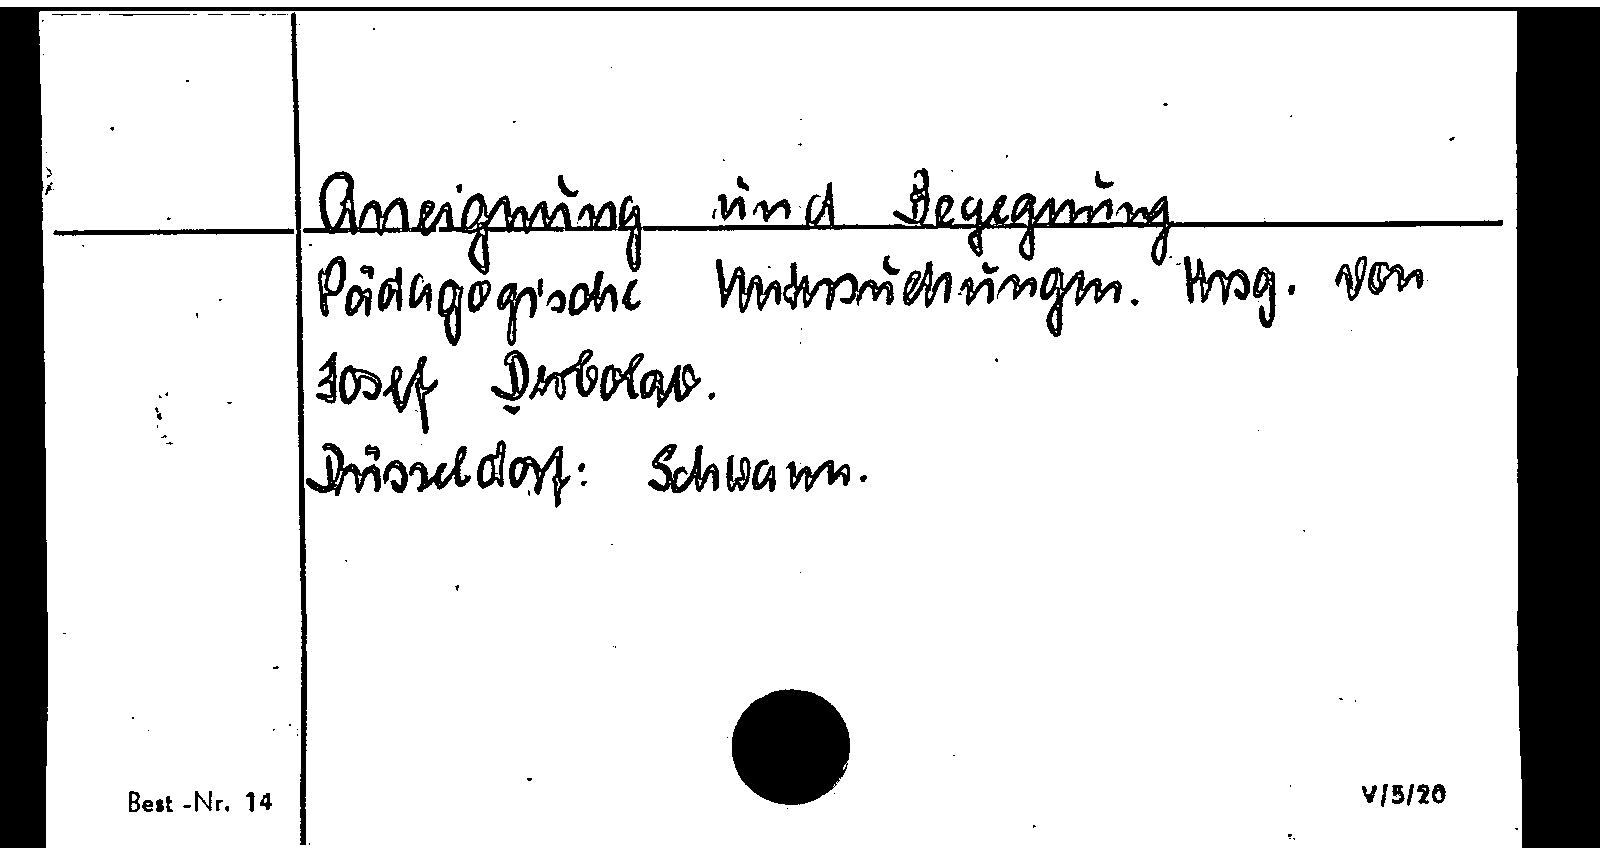 Aneignung und Begegnung
Pädagogische Untersuchungen. Hrsg. von
Josef Derbolav.
Düsseldorf: Schwann.
Best -Nr. 14
V/5/20